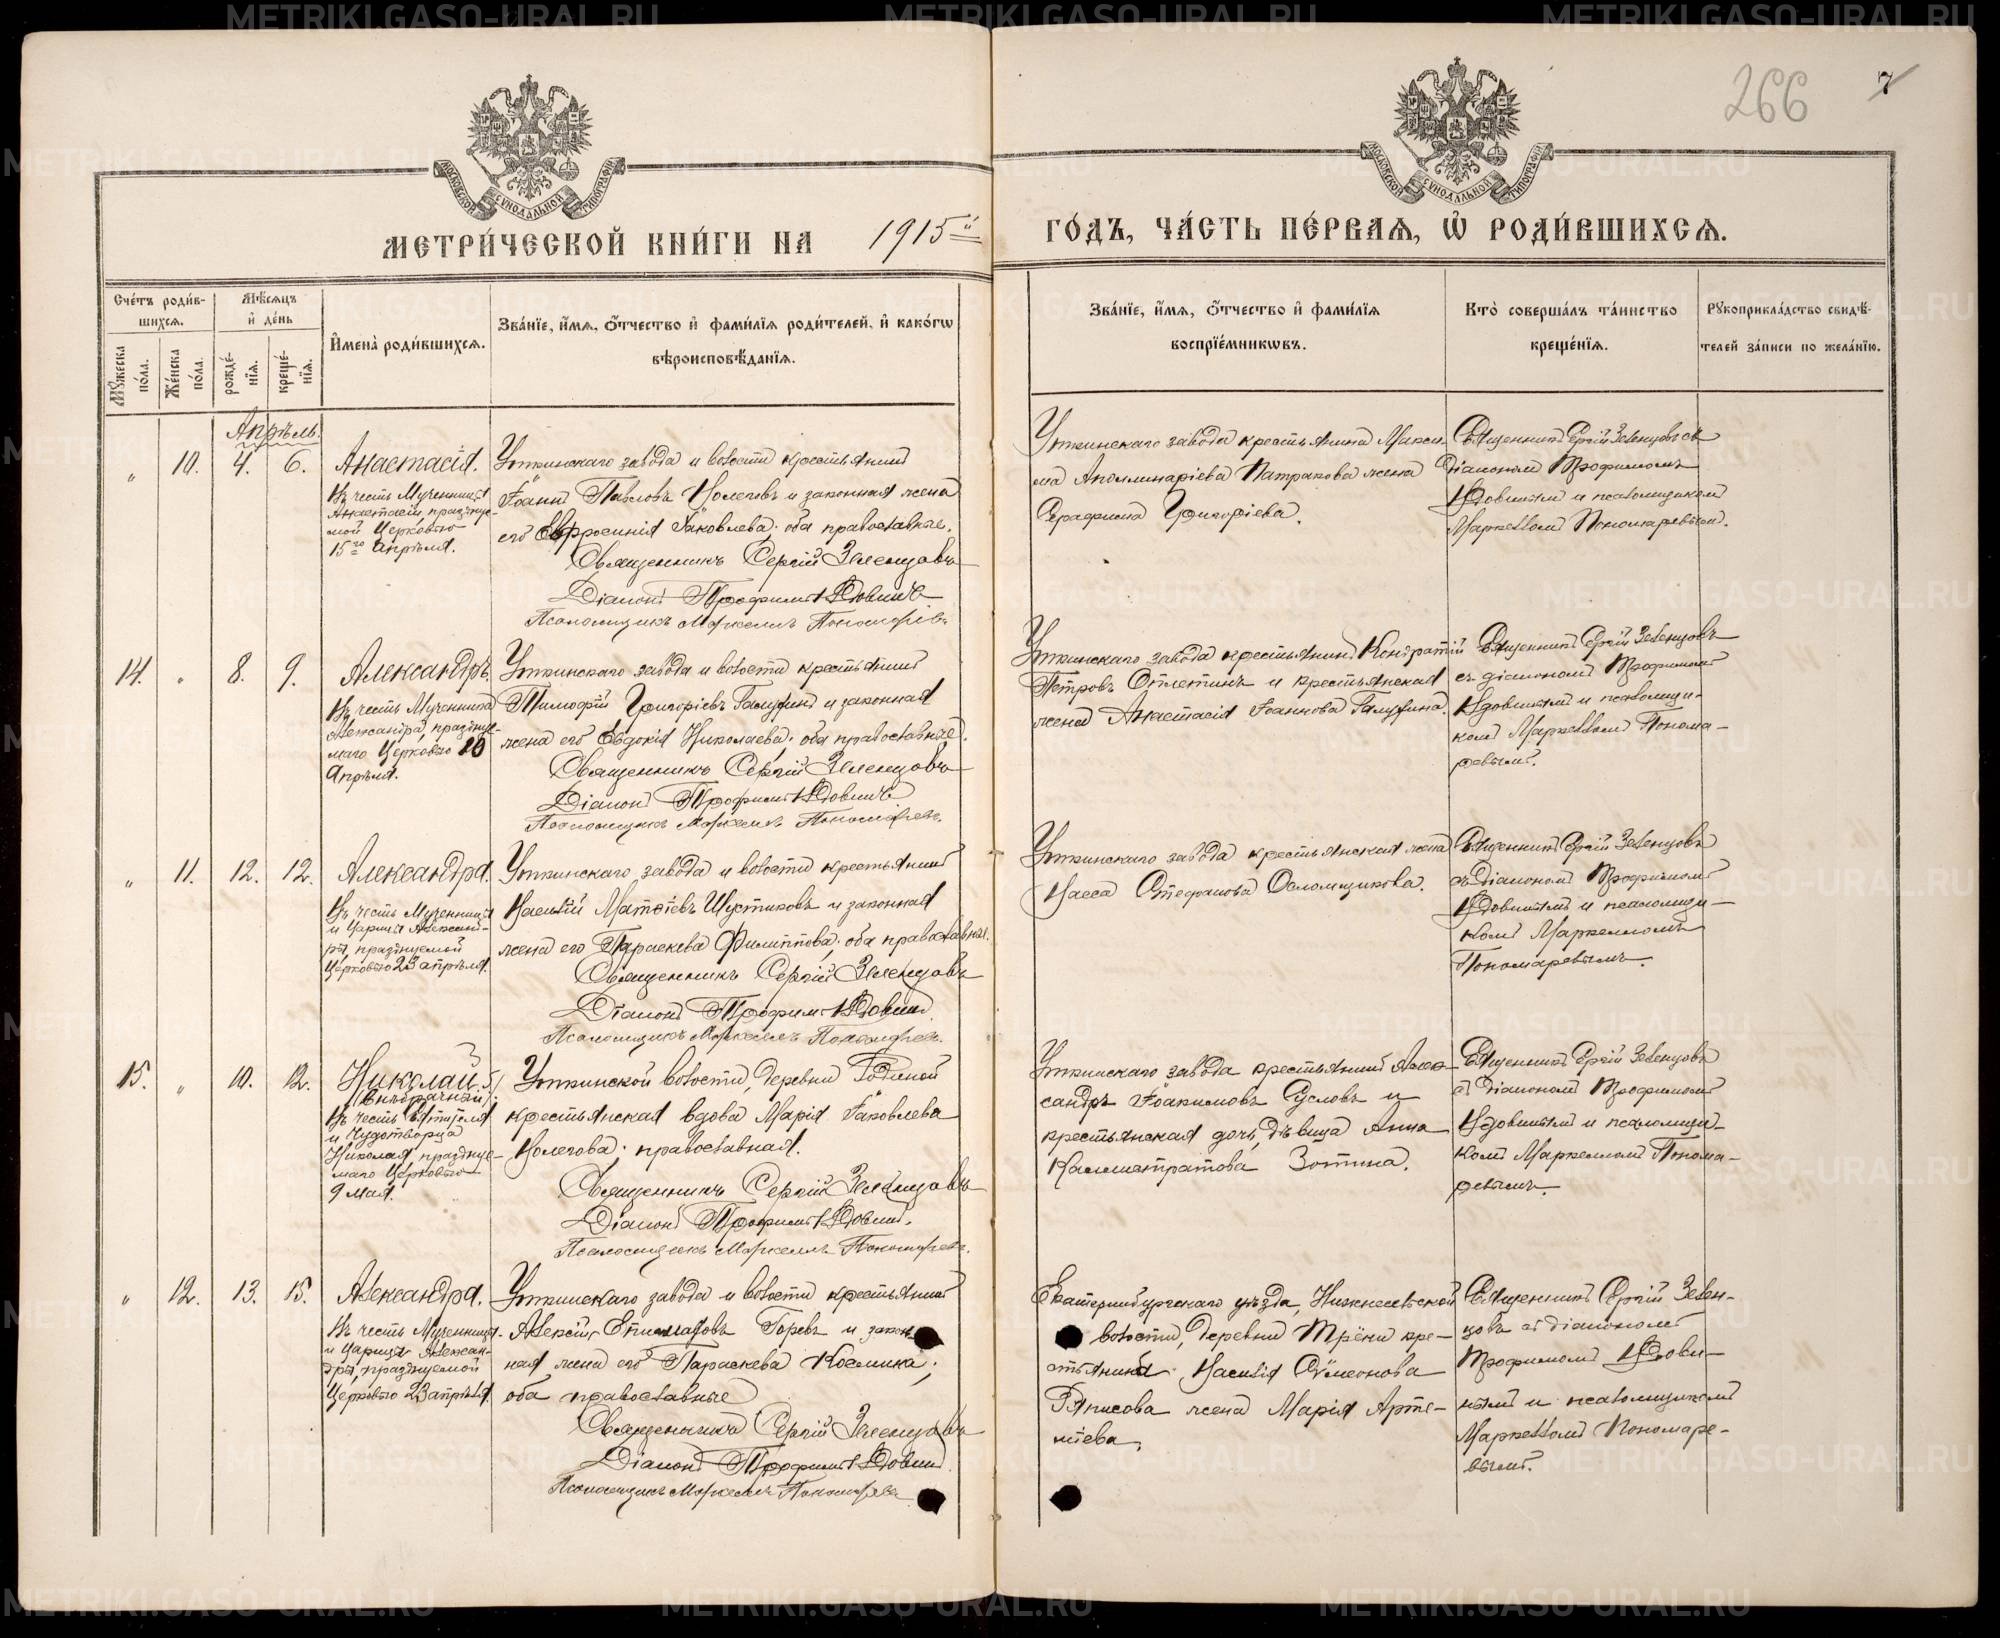 266 7
МОСКОВСКОЙ СѴНОДАЛЬНОЙ ТИПОГРАФІИ
МОСКОВСКОЙ СѴНОДАЛЬНОЙ ТИПОГРАФІИ
МЕТРИ́ЧЕСКОЙ КНИ́ГИ НА 1915й ГО́ДЪ, ЧА́СТЬ ПЕ́РВАЯ, Ѡ РОДИ́ВШИХСЯ.
Сче́тъ роди́в-
шихся.
Му́жеска по́ла.
Же́нска по́ла.
Мѣ́сяцъ
и де́нь
рожде́-
нія.
креще́-
нія.
Имена̀ роди́вшихся.
Зва́ніе, и́мя, о́тчество и фами́лія роди́телей, и како́гѡ
вѣроисповѣ́данія.
Зва́ніе, и́мя, о́тчество и фами́лія
воспріе́мникѡвъ.
Кто̀ соверша́лъ та́инство
креще́нія.
Рукоприкла́дство свидѣ́-
телей за́писи по жела́нію.
Апрѣль.
„ 10. 4. 6.
Анастасія.
Въ честь Мученицы
Анастасіи, праздну-
мой Церковью
15го Апрѣля.
Уткинскаго завода и волости крестьянинъ
Іоаннъ Павловъ Колеговъ и законная жена
его Евфросинія Яковлева; оба православные.
Священникъ Сергій Зеленцовъ
Діаконъ Трофимъ Вдовинъ
Псаломщикъ Маркеллъ Пономаревъ
Уткинскаго завода крестьянина Макси-
ма Аполлинаріева Патракова жена
Серафима Григорьева.
Священникъ Сергій Зеленцовъ съ
Діакономъ Трофимомъ
Вдовинымъ и псаломщикомъ
Маркелломъ Пономаревымъ.
14. „ 8. 9.
Александръ.
Въ честь Мученика
Александра, праздну-
маго Церковью 10
Апрѣля.
Уткинскаго завода и волости крестьянинъ
Тимофей Григорьевъ Галузинъ и законная
жена его Евдокія Николаева; оба православные.
Священникъ Сергій Зеленцовъ
Діаконъ Трофимъ Вдовинъ
Псаломщикъ Маркеллъ Пономаревъ.
Уткинскаго завода крестьянинъ Кондратій
Петровъ Оплетинъ и крестьянская
жена Анастасія Іоаннова Галузина.
Священникъ Сергій Зеленцовъ
съ діакономъ Трофимомъ
Вдовинымъ и псаломщи-
комъ Маркелломъ Понома-
ревымъ.
„ 11. 12. 12.
Александра.
Въ честь Мученицы
и Царицы Алексан-
ры, празднуемой
Церковью 23 апрѣля.
Уткинскаго завода и волости крестьянинъ
Василій Матѳіевъ Шустиковъ и законная
жена его Параскева Филиппова; оба православные.
Священникъ Сергій Зеленцовъ
Діаконъ Трофимъ Вдовинъ.
Псаломщикъ Маркеллъ Пономаревъ.
Уткинскаго завода крестьянская жена
Васса Стефанова Осломщикова.
Священникъ Сергій Зеленцовъ
съ Діакономъ Трофимомъ
Вдовинымъ и псаломщи-
комъ Маркелломъ
Пономаревымъ.
15. „ 10. 12.
Николай.
(внѣбрачный)
Въ честь Святителя
и Чудотворца
Николая, праздну-
маго Церковью
9 мая.
Уткинской волости, деревни Родиной
крестьянская вдова Марія Яковлева
Колегова; православная.
Священникъ Сергій Зеленцовъ
Діаконъ Трофимъ Вдовинъ.
Псаломщикъ Маркеллъ Пономаревъ.
Уткинскаго завода крестьянинъ Алек-
сандръ Іоакимовъ Сусловъ и
крестьянская дочь, дѣвица Анна
Каллистратова Зотина.
Священникъ Сергій Зеленцовъ
съ діакономъ Трофимомъ
Вдовинымъ и псаломщи-
комъ Маркелломъ Понома-
ревымъ.
„ 12. 13. 15.
Александра.
Въ честь Мученицы
и Царицы Алексан-
дры, празднуемой
Церковью 23 апрѣля.
Уткинскаго завода и волости крестьянинъ
Алексій Горевъ и закон
ная жена его Параскева Космина;
оба православные
Священникъ Сергій Зеленцовъ
Діаконъ Трофимъ Вдовинъ.
Псаломщикъ Маркеллъ Пономаревъ
Екатеринбургскаго уѣзда, Нижнесельской
волости, деревни Трёки кре-
стьянина Василія Сѵмеонова
Ряписова жена Марія Арте-
міева.
Священникъ Сергій Зелен-
цовъ съ діакономъ
Трофимомъ Вдови-
нымъ и псаломщикомъ
Маркелломъ Пономаре-
вымъ.
METRIKI.GASO-URAL.RU